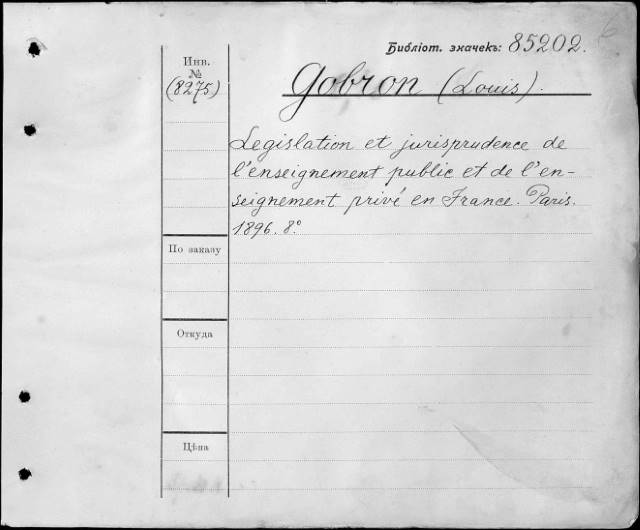 Библіот. значекъ: 85202.
Инв.
№
(8275)
Gobron (Louis).
Legislation et jurisprudence de
l'enseignement public et de l'en-
seignement privé en France. Paris.
1896. 8°
По заказу
Откуда
Цѣна